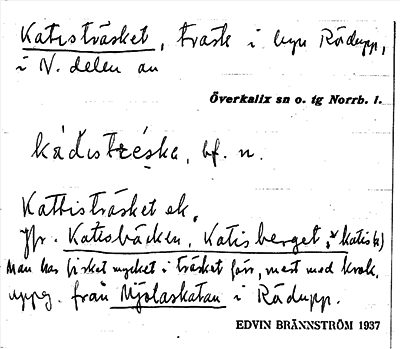 Katisträsket, träsk i byn Rödupp,
i N. delen av
Överkalix sn o. tg Norrb. l.
kàdɩstréska, bf. n.
Kattisträsket ek.
Jfr. Katisbäcken, Katisberget, katis(a)
Man har fisket mycket i träsket förr, mest med krok.
uppg. från Mjölaskatan i Rödupp.
EDVIN BRÄNNSTRÖM 1937